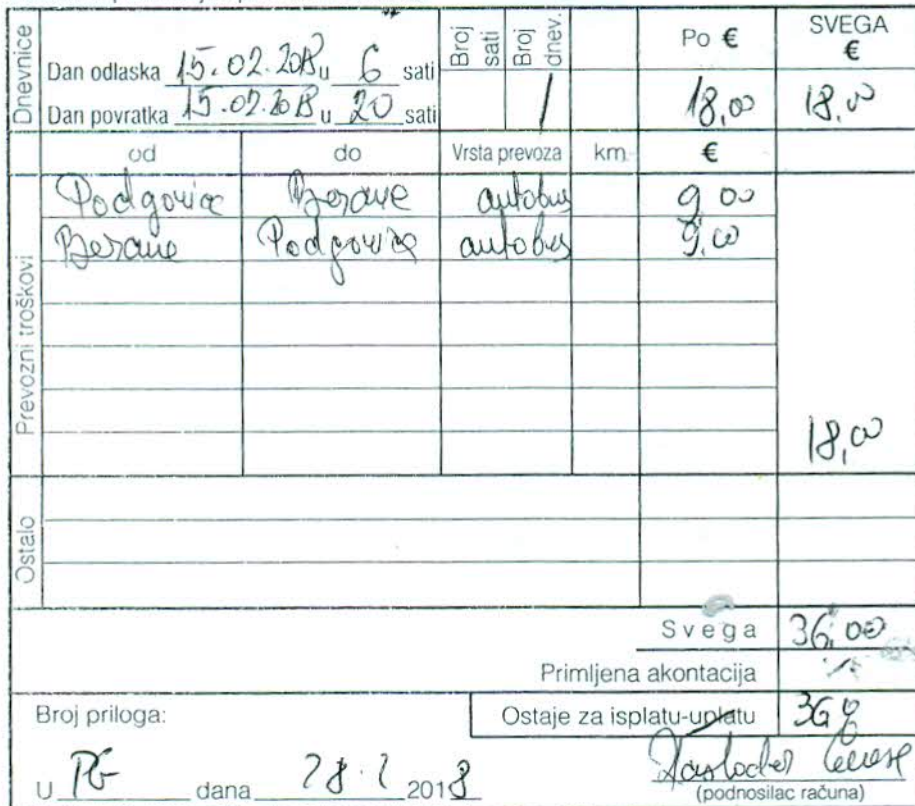 Dnevnice
Dan odlaska 15.02.2018 u 6 sati
Dan povratka 15.02.2018 u 20 sati
Broj sati
Broj dnev.
Po €
SVEGA €
1 18,00 18,00
Prevozni troškovi
od do Vrsta prevoza km €
Podgorica Berane autobus 9 00
Berane Podgorica autobus 9,00
18,00
Ostalo
Svega 36,00
Primljena akontacija
Broj priloga:
Ostaje za isplatu-uplatu 36
U PG dana 2018
(podnosilac računa)